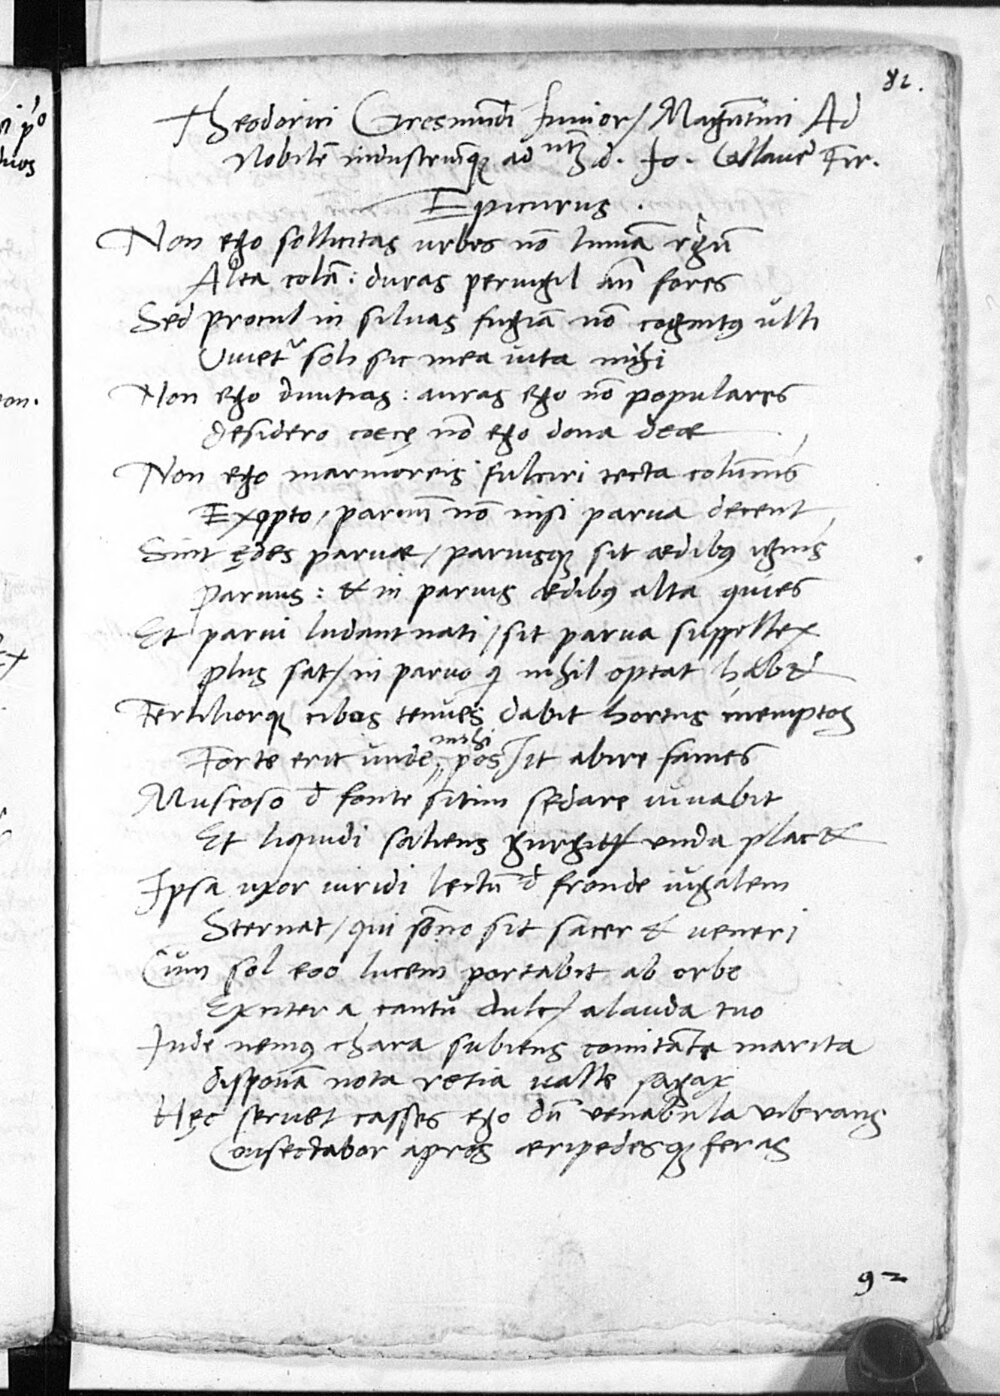 82.
Theodorici Gresmundi Junior/ Magūtini Ad
Nobilē industriūq̨ ad d. Jo. Fir.
Epicurus .
Non ego sollicitas urbes nō limiā rgū
Alea colā : duras peruigil añ fores
Sed procul in siluas fugiā nō cognitꝯ ulli
Viuetᷣ soli sic mea uita mihi
Non ego diuitias : auras ego nō populares
desidero cœcę nō ego dona deæ
Non ego marmoreis fulciri tecta colūnis
Exopto / paruū nō nisi parua decent
Sint ędes paruæ / paruisq̨ sit ædibꝯ ignis
Paruus : & in paruis ædibꝯ alta quies
Et parui ludant nati / sit parua suppellex
Plus sat / in paruo q̇ nihil optat habet
Fertiliorq̨ cibos tenues dabit hortus inemptos
Forte erit unde mihi possit abire fames
Muscoso d̄ fonte sitim sedare iuuabit
Et liquidi saliens gurgitis unda placet
Ipsa uxor uiridi lectū d̄ fronde iugalem
Sternat / qui sōno sit sacer & ueneri
Cum sol eoo lucem portabit ab orbe
Exciter a cantu dulcis alauda tuo
Inde nemꝯ chara subiens comitāte marita
disponā nota retia ualle sagax
Hęc seruet casses ego dū uenabula uibrans
Consectabor apros æripedesq̨ feras
92